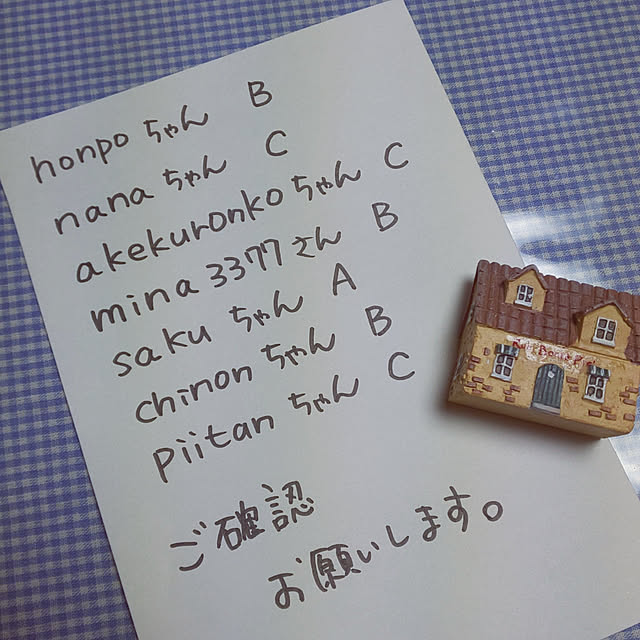 honpo ちゃん B
nana ちゃん C
akekuronko ちゃん C
mina 3377 さん B
saku ちゃん A
chinon ちゃん B
piitan ちゃん C
ご確認
お願いします。